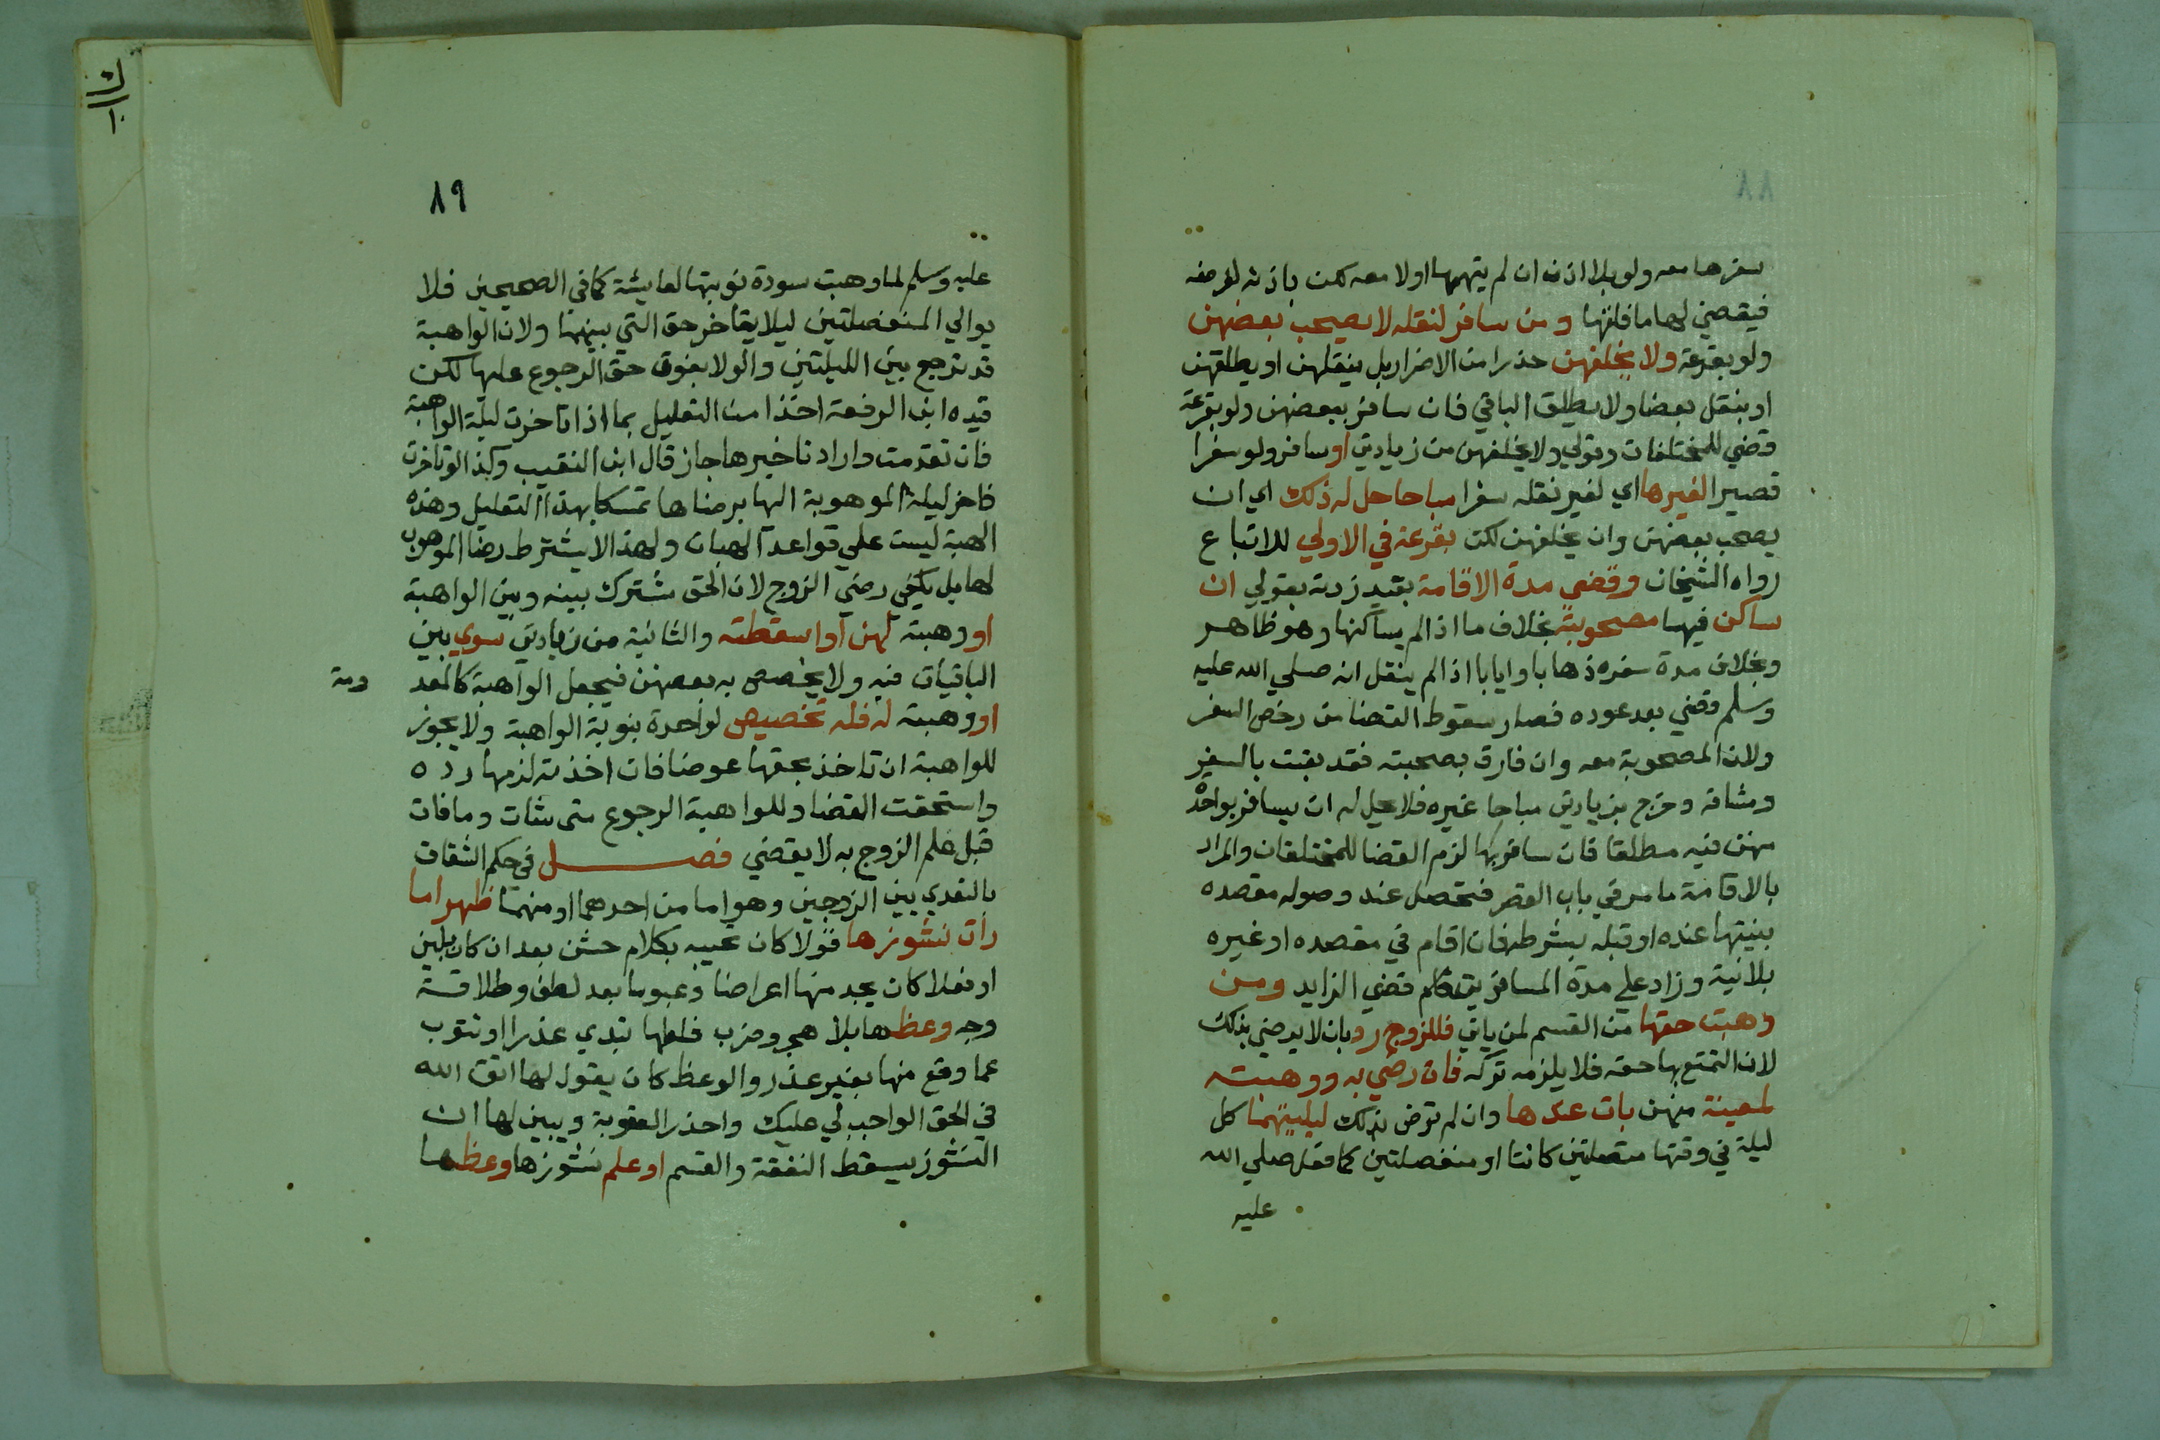 ٨٨
سفرها معه ولو بلا اذن ان لم ينهها او لا معه لكن باذنه لغرضه
فيقضي لها ما فاتها ومن سافر لنقله لا يصحب بعضهن
ولو بقرعة ولا يخلفهن حذرا من الاضرار بل ينقلهن او يطلقهن
او ينقل بعضا ولا يطلق الباقي فان سافر ببعضهن ولو بقرعة
قضي للمختلفات وقولي ولا يخلفهن من زيادتي او سافر ولو سفرا
قصيرا لغيرها اي لغير نقله سفرا مباحا حل له ذلك اي ان
يصحب بعضهن وان يخلفهن لكن بقرعة في الاولي للاتباع
رواه الشيخان وقضي مدة الاقامة بقيد زدته بقولي ان
ساكن فيها مصحوبته بخلاف ما اذا لم يساكنها وهو ظاهر
وبخلاف مدة سفره ذهابا وايابا اذ لم ينقل انه صلي الله عليه
وسلم قضي بعد عوده فصار سقوط القضا من رخص السفر
ولان المصحوبة معه وان فازت بصحبته فقد تعبت بالسفر
ومشاقه وخرج بزيادتي مباحا غيره فلا يحل له ان يسافر بواحدة
منهن فيه مطلقا فان سافر بها لزم القضا للمختلفات والمراد
بالاقامة ما مر في باب القصر فتحصل عند وصوله مقصده
بنيتها عنده او قبله بشرطه فان اقام في مقصده او غيره
بلا نية وزاد علي مدة المسافرين قضي الزايد ومن
وهبت حقها من القسم لمن ياتي فللزوج رد بان لا يرضي بذلك
لان التمتع بها حقه فلا يلزمه تركه فان رضي به ووهبته
لمعينة منهن بات عندها وان لم ترض بذلك ليلتيهما كل
ليلة في وقتها متصلتين كانتا او منفصلتين كما فعل صلي الله
عليه
٨٩
عليه وسلم لما وهبت سودة نوبتها لعايشة كما في الصحيحين فلا
يوالي المنفصلتين ليلا يتاخر حق التي بينهما ولان الواهبة
قد ترجع بين الليلتين والولا يفوت حق الرجوع عليها لكن
قيده ابن الرفعة اخذا من التعليل بما اذا تاخرت ليلة الواهبة
فان تقدمت واراد تاخيرها جاز قال ابن النقيب وكذا لو تاخرت
فاخر ليلة الموهوبة اليها برضاها تمسكا بهذا التعليل وهذه
الهبة ليست علي قواعد الهبات ولهذا لا يشترط رضا الموهوب
لها بل يكفي رضي الزوج لان الحق مشترك بينه وبين الواهبة
او وهبته لهن او اسقطته والثانية من زيادتي سوي بين
الباقيات فيه ولا يخصص به بعضهن فيجعل الواهبة كالمعد
ومة
او وهبته له فله تخصيص لواحدة بنوبة الواهبة ولا يجوز
للواهبة ان تاخذ بحقها عوضا فان اخذته لزمها رده
واستحقت القضا وللواهبة الرجوع متى شات وما فات
قبل علم الزوج به لا يقضي فصل في حكم الشقاق
بالتعدي بين الزوجين وهو اما من احدهما او منهما ظهر اما
رات نشوزها قولا كان تجيبه بكلام خشن بعد ان كان بلين
او فعلا كان يجد منها اعراضا وعبوسا بعد لطف وطلاقة
وجه وعظها بلا هجر وضرب فلعلها تبدي عذرا او تتوب
عما وقع منها بغير عذر والوعظ كان يقول لها اتق الله
في الحق الواجب لي عليك واحذر العقوبة ويبين لها ان
النشوز يسقط النفقة والقسم او علم نشوزها وعظها